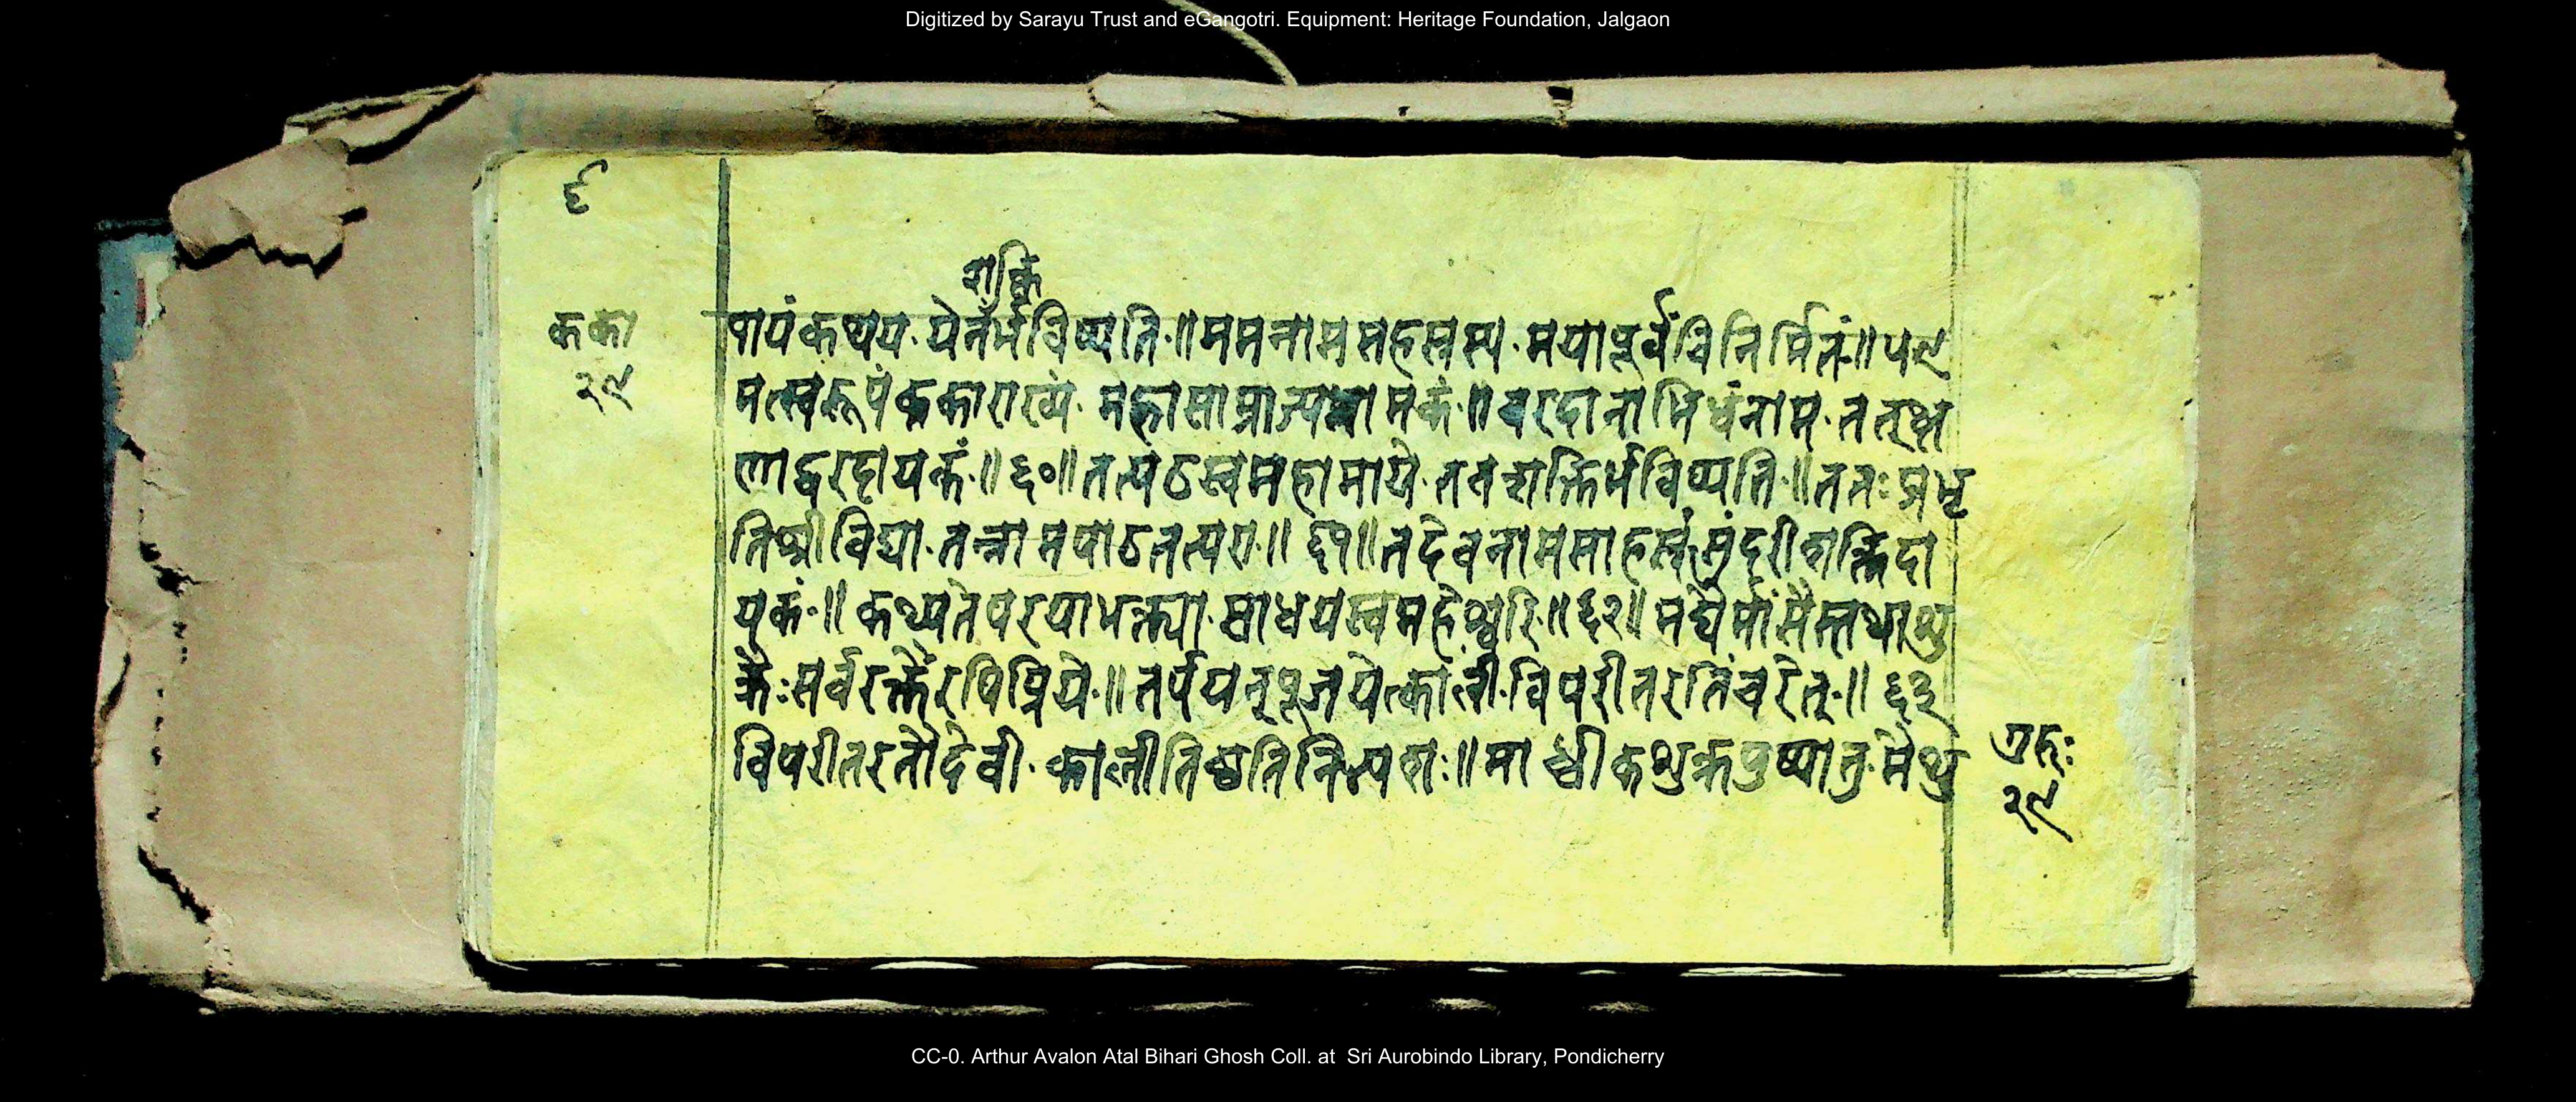 Digitized by Sarayu Trust and eGangotri. Equipment: Heritage Foundation, Jalgaon
६
शक्ति
कका
२९
पायंकथय॰येनर्भविष्यति॰॥ममनामसहस्रस्य॰मयापूर्वंविनिर्मितं॰॥५९
मत्स्वरूपंककाराख्यं॰महासाम्राज्यनामकं॰॥वरदानाभिधंनाम॰तत्क्ष
णाद्वरदायकं॰॥६०॥तत्पठस्वमहामाये॰तवशक्तिर्भविष्यति॰॥ततःप्रभृ
तिश्रीविद्या॰तन्नामपाठतत्परा॰॥६१॥तदेवनामसाहस्रंसुंदरीशक्तिदा
यकं॰॥कथ्यतेपरयाभक्त्या॰साधयस्वमहेश्वरि॰॥६२॥मद्यैर्मांसैस्तथाशु
क्रैःसर्वरक्तैरपिप्रिये॰॥तर्पयन्पूजयेत्कालीं॰विपरीतरतिंचरेत्॰॥६३
विपरीतरतौदेवी॰कालीतिष्ठतिनित्यशः॥माध्वीकशुक्रपुष्पान्न॰मैथु
गुरुः
२९
CC-0. Arthur Avalon Atal Bihari Ghosh Coll. at Sri Aurobindo Library, Pondicherry